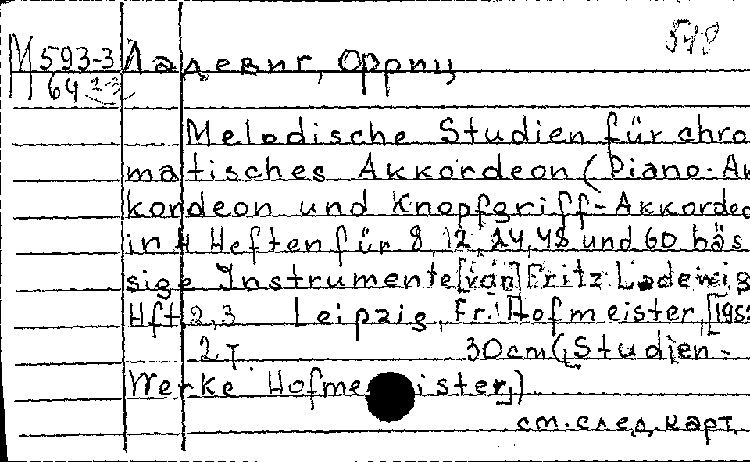 548
М 593-3 Ладевиг, Фриц
64
Melodische Studien für chro
matisches Akkordeon (Piano-Ak
kordeon und Knopfgriff-Akkordeo
in 4 Heften für 8, 12, 24, 48 und 60 bäs
sige Instrumente [von] Fritz Ladewig
Hft 2,3 Leipzig, Fr. Hofmeister, [195
2 т. 30cm (Studien-
Werke Hofmeister)
см. след. карт.